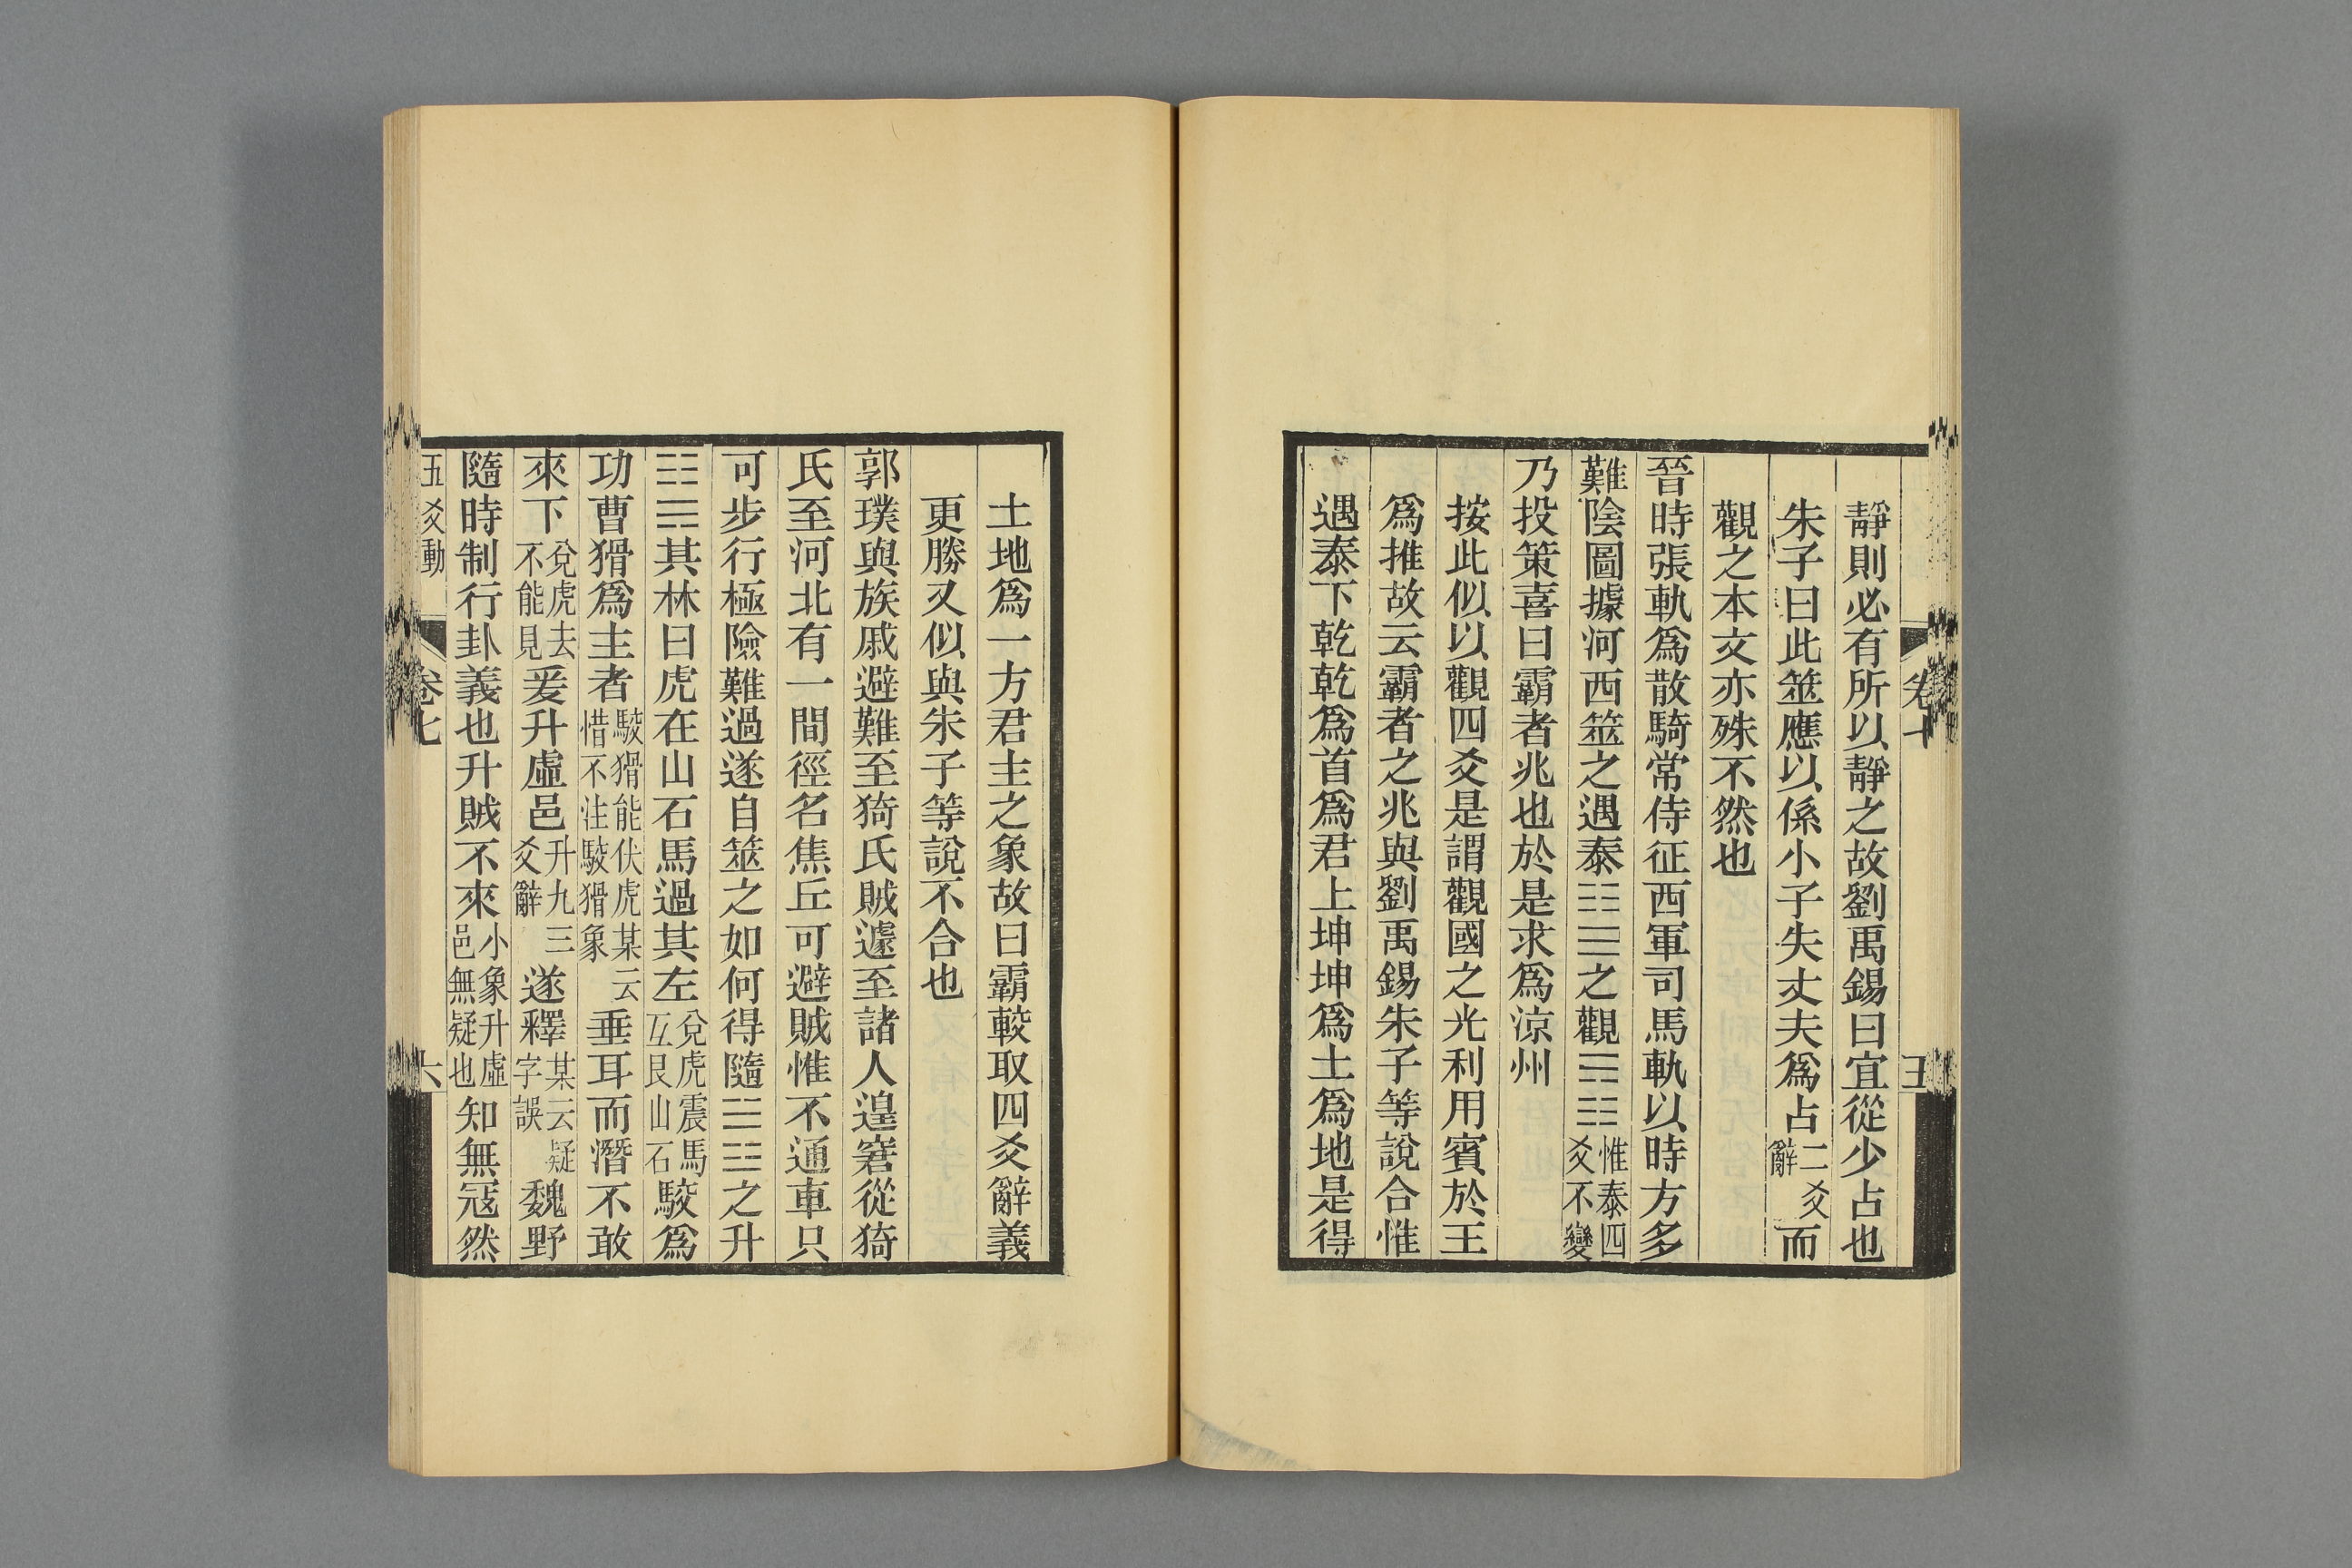 靜則必有所以靜之故劉禹錫曰宜從少占也
朱子曰此筮應以係小子失丈夫爲占二爻辭而
觀之本文亦殊不然也
晉時張軌爲散騎常侍征西軍司馬軌以時方多
難陰圖據河西筮之遇泰☷☰之觀☴☷惟泰四爻不變
乃投策喜曰霸者兆也於是求爲涼州
按此似以觀四爻是謂觀國之光利用賓於王
爲推故云霸者之兆與劉禹錫朱子等說合惟
遇泰下乾乾爲首爲君上坤坤爲土爲地是得
土地爲一方君主之象故曰霸較取四爻辭義
更勝又似與朱子等說不合也
郭璞與族戚避難至猗氏賊遽至諸人遑窘從猗
氏至河北有一間徑名焦丘可避賊惟不通車只
可步行極險難過遂自筮之如何得隨☱☳之升
☷☴其林曰虎在山石馬過其左兌虎震馬互艮山石駮爲
功曹猾爲主者駮猾能伏虎某云惜不注駮猾象垂耳而潛不敢
來下兌虎去不能見爰升虛邑升九三爻辭遂釋某云疑字誤魏野
隨時制行卦義也升賊不來小象升虛邑無疑也知無冦然
五爻動 卷七 六